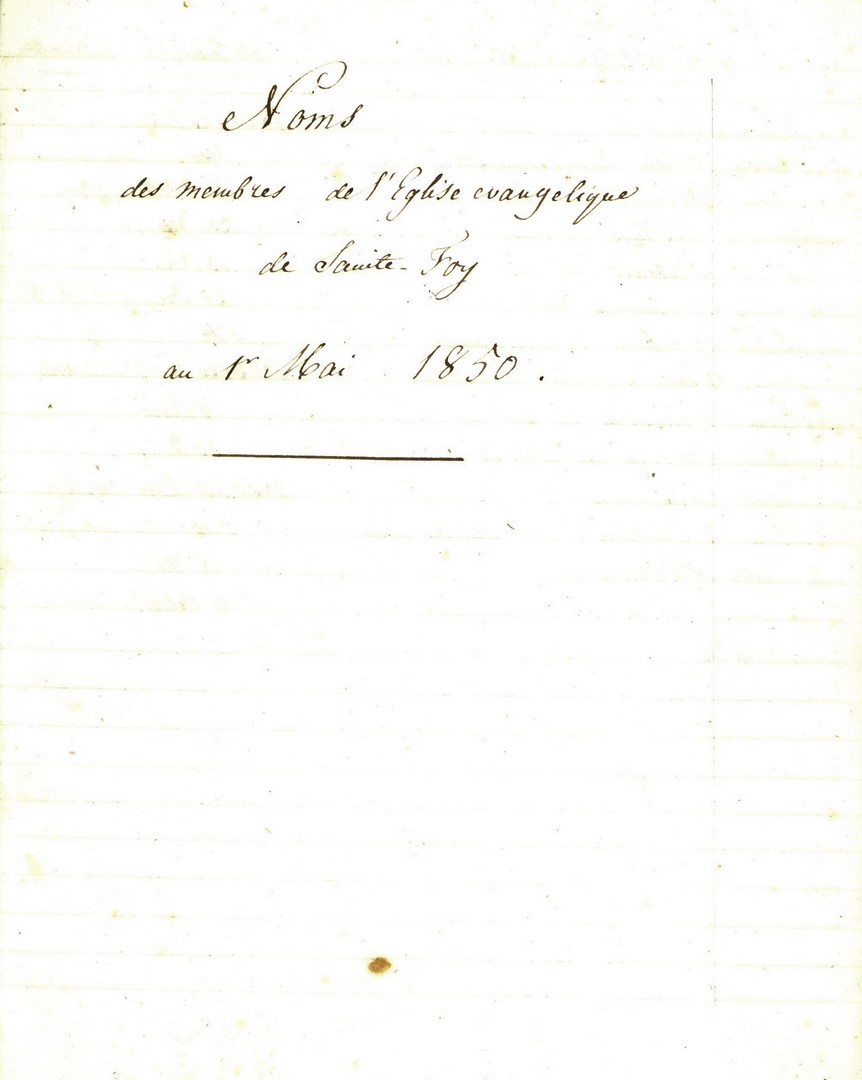 Noms
des membres de l'Eglise evangelique
de Sainte-Foy
au 1r Mai 1850.